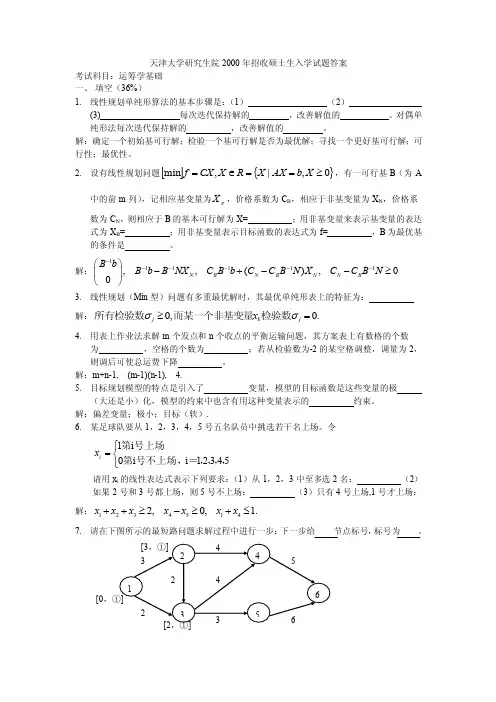 天津大学研究生院 2000 年招收硕士生入学试题答案
考试科目：运筹学基础
一、 填空（36%）
1. 线性规划单纯形算法的基本步骤是：（1） （2）
(3) 每次迭代保持解的 ，改善解值的 。对偶单
纯形法每次迭代保持解的 ，改善解值的 。
解：确定一个初始基可行解；检验一个基可行解是否为最优解；寻找一个更好基可行解；可
行性；最优性。
2. 设有线性规划问题[min]f = CX, X ∈ R = {X | AX = b, X ≥ 0}，有一可行基 B（为 A
中的前 m 列），记相应基变量为 X_B，价格系数为 C_B，相应于非基变量为 X_N，价格系
数为 C_N，则相应于 B 的基本可行解为 X= ；用非基变量来表示基变量的表达
式为 X_B= ；用非基变量表示目标函数的表达式为 f= ，B 为最优基
的条件是 。
解：(B⁻¹b 0)， B⁻¹b − B⁻¹NX_N， C_B B⁻¹b + (C_N − C_B B⁻¹N)X_N， C_N − C_B B⁻¹N ≥ 0
3. 线性规划（Min 型）问题有多重最优解时，其最优单纯形表上的特征为：
解：所有检验数σ_j ≥ 0，而某一个非基变量x_k检验数σ_j = 0.
4. 用表上作业法求解 m 个发点和 n 个收点的平衡运输问题，其方案表上有数格的个数
为 ，空格的个数为 ；若从检验数为-2 的某空格调整，调量为 2，
则调后可使总运费下降 。
解：m+n-1, (m-1)(n-1), 4.
5. 目标规划模型的特点是引入了 变量，模型的目标函数是这些变量的极
（大还是小）化，模型的约束中也含有用这种变量表示的 约束。
解：偏差变量；极小；目标（软）.
6. 某足球队要从 1，2，3，4，5 号五名队员中挑选若干名上场。令
x_i = { 1第i号上场
0第i号不上场，i＝1,2,3,4,5
请用 x_i 的线性表达式表示下列要求：（1）从 1，2，3 中至多选 2 名： （2）
如果 2 号和 3 号都上场，则 5 号不上场： （3）只有 4 号上场,1 号才上场：
解：x₁ + x₂ + x₃ ≥ 2, x₄ − x₅ ≥ 0, x₁ + x₄ ≤ 1.
7. 请在下图所示的最短路问题求解过程中进行一步：下一步给 节点标号，标号为 。
[3，①] 4
3 2 4 5
1 2 4 6
[0，①]
2 3 3 5 6
[2，①]